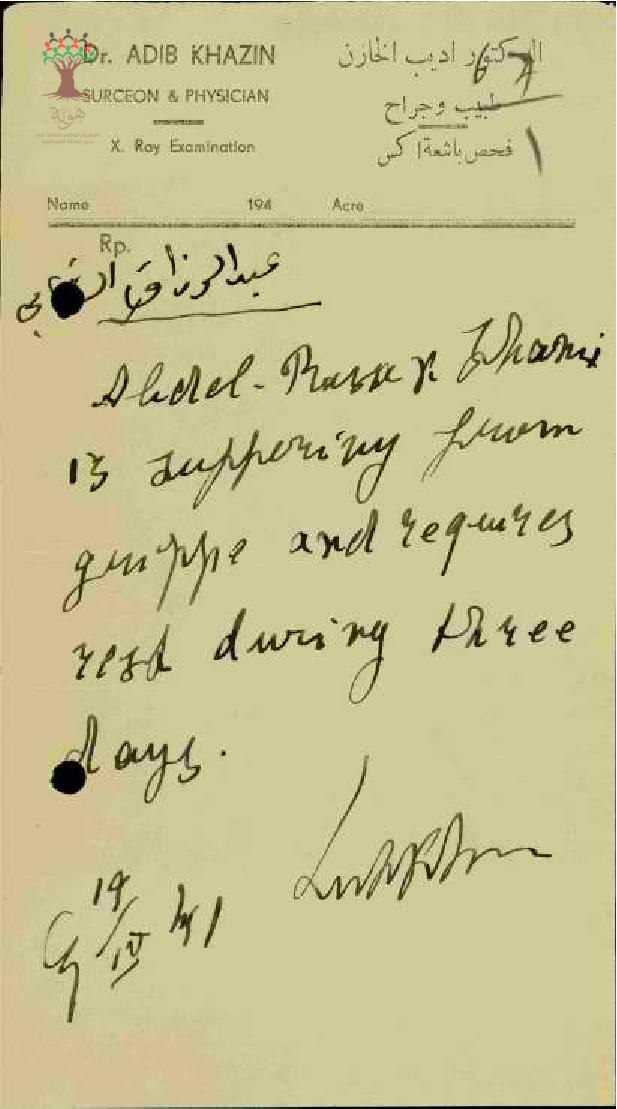 Dr. ADIB KHAZIN
الدكتور اديب الخازن
67
SURGEON & PHYSICIAN
طبيب وجراح
هوية
X. Ray Examination
فحص باشعة اكس
1
Name 194 Acre
Rp.
عبدالرزاق
Abdel-Razzak
is suffering from
grippe and requires
rest during three
days.
19/IV 41